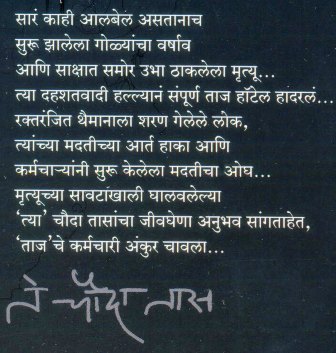 सारं काही आलबेल असतानाच
सुरू झालेला गोळ्यांचा वर्षाव
आणि साक्षात समोर उभा ठाकलेला मृत्यू...
त्या दहशतवादी हल्ल्यानं संपूर्ण ताज हॉटेल हादरलं...
रक्तरंजित थैमानाला शरण गेलेले लोक,
त्यांच्या मदतीच्या आर्त हाका आणि
कर्मचाऱ्यांनी सुरू केलेला मदतीचा ओघ...
मृत्यूच्या सावटाखाली घालवलेल्या
‘त्या’ चौदा तासांचा जीवघेणा अनुभव सांगताहेत,
‘ताज’चे कर्मचारी अंकुर चावला...
ते चौदा तास